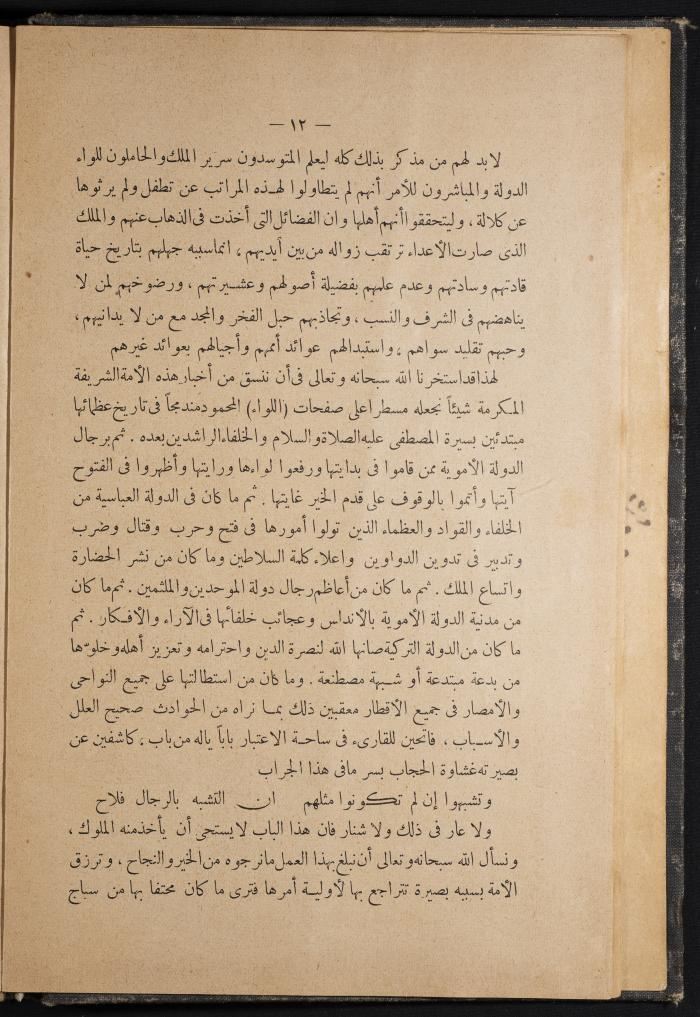 — ١٢ —
لابد لهم من مذكر بذلك كله ليعلم المتوسدون سرير الملك والحاملون للواء
الدولة والمباشرون للأمر أنهم لم يتطاولوا لهذه المراتب عن تطفل ولم يرثوها
عن كلالة ، وليتحققوا أنهم أهلها وان الفضائل التى أخذت فى الذهاب عنهم والملك
الذى صارت الأعداء ترتقب زواله من بين أيديهم ، انما سببه جهلهم بتاريخ حياة
قادتهم وسادتهم وعدم علمهم بفضيلة أصولهم وعشيرتهم ، ورضوخهم لمن لا
يناهضهم فى الشرف والنسب ، وتجاذبهم حبل الفخر والمجد مع من لا يدانيهم ،
وحبهم تقليد سواهم ، واستبدالهم عوائد أممهم وأجيالهم بعوائد غيرهم
لهذا قد استخرنا الله سبحانه وتعالى فى أن ننسق من أخبار هذه الأمة الشريفة
المكرمة شيئاً نجعله مسطرا على صفحات (اللواء) المحمود مندمجاً فى تاريخ عظمائها
مبتدئين بسيرة المصطفى عليه الصلاة والسلام والخلفاء الراشدين بعده . ثم برجال
الدولة الأموية ممن قاموا فى بدايتها ورفعوا لواءها ورايتها وأظهروا فى الفتوح
آيتها وأتموا بالوقوف على قدم الخير غايتها . ثم ما كان فى الدولة العباسية من
الخلفاء والقواد والعظماء الذين تولوا أمورها فى فتح وحرب وقتال وضرب
وتدبير فى تدوين الدواوين واعلاء كلمة السلاطين وما كان من نشر الحضارة
واتساع الملك . ثم ما كان من أعاظم رجال دولة الموحدين والملثمين . ثم ما كان
من مدنية الدولة الأموية بالأندلس وعجائب خلفائها فى الآراء والأفكار . ثم
ما كان من الدولة التركية صانها الله لنصرة الدين واحترامه وتعزيز أهله وخلوّها
من بدعة مبتدعة أو شبهة مصطنعة . وما كان من استطالتها على جميع النواحى
والأمصار فى جميع الأقطار معقبين ذلك بما نراه من الحوادث صحيح العلل
والأسباب ، فاتحين للقارىء فى ساحة الاعتبار باباً ياله من باب ، كاشفين عن
بصيرته غشاوة الحجاب بسر ما فى هذا الجراب
وتشبهوا إن لم تكونوا مثلهم ان التشبه بالرجال فلاح
ولا عار فى ذلك ولا شنار فان هذا الباب لا يستحى أن يأخذ منه الملوك ،
ونسأل الله سبحانه وتعالى أن نبلغ بهذا العمل ما نرجوه من الخير والنجاح ، وترزق
الأمة بسببه بصيرة تتراجع بها لأولية أمرها فترى ما كان محتفا بها من سباج